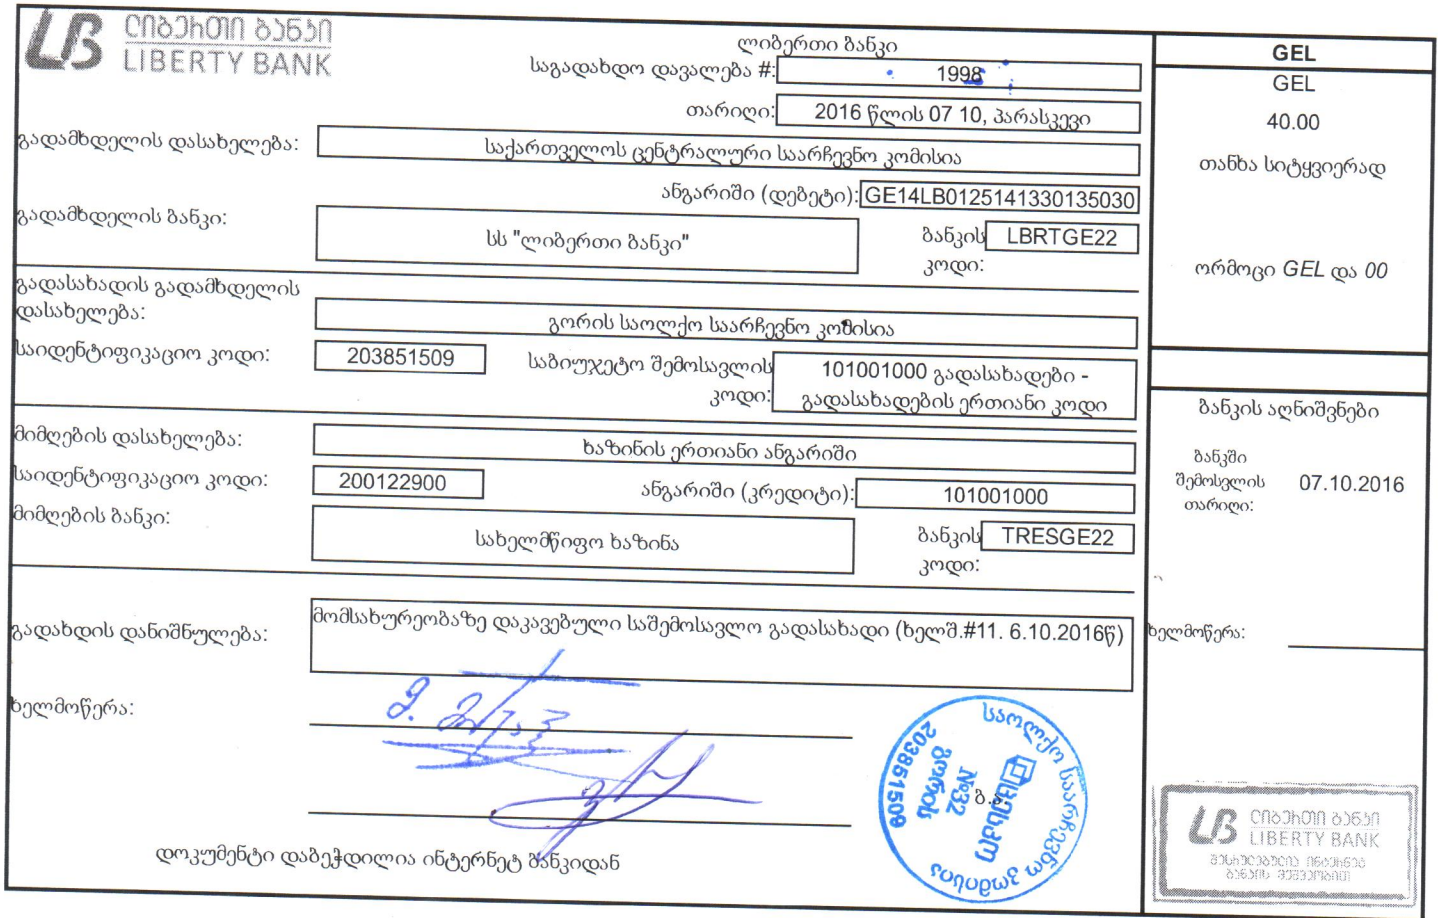 ლიბერთი ბანკი
LIBERTY BANK
ლიბერთი ბანკი
საგადახდო დავალება #: 1998
თარიღი: 2016 წლის 07 10, პარასკევი
გადამხდელის დასახელება: საქართველოს ცენტრალური საარჩევნო კომისია
ანგარიში (დებეტი): GE14LB0125141330135030
გადამხდელის ბანკი: სს "ლიბერთი ბანკი" ბანკის კოდი: LBRTGE22
გადასახადის გადამხდელის
დასახელება: გორის საოლქო საარჩევნო კომისია
საიდენტიფიკაციო კოდი: 203851509 საბიუჯეტო შემოსავლის კოდი: 101001000 გადასახადები -
გადასახადების ერთიანი კოდი
მიმღების დასახელება: ხაზინის ერთიანი ანგარიში
საიდენტიფიკაციო კოდი: 200122900 ანგარიში (კრედიტი): 101001000
მიმღების ბანკი: სახელმწიფო ხაზინა ბანკის კოდი: TRESGE22
გადახდის დანიშნულება: მომსახურეობაზე დაკავებული საშემოსავლო გადასახადი (ხელშ.#11. 6.10.2016წ)
ხელმოწერა:
ბ.ა.
საოლქო საარჩევნო კომისია
203851509
გორის
№32
ცესკო
დოკუმენტი დაბეჭდილია ინტერნეტ ბანკიდან
GEL
GEL
40.00
თანხა სიტყვიერად
ორმოცი GEL და 00
ბანკის აღნიშვნები
ბანკში
შემოსვლის 07.10.2016
თარიღი:
ხელმოწერა:
ლიბერთი ბანკი
LIBERTY BANK
შესრულებულია ინტერნეტ
ბანკის მეშვეობით